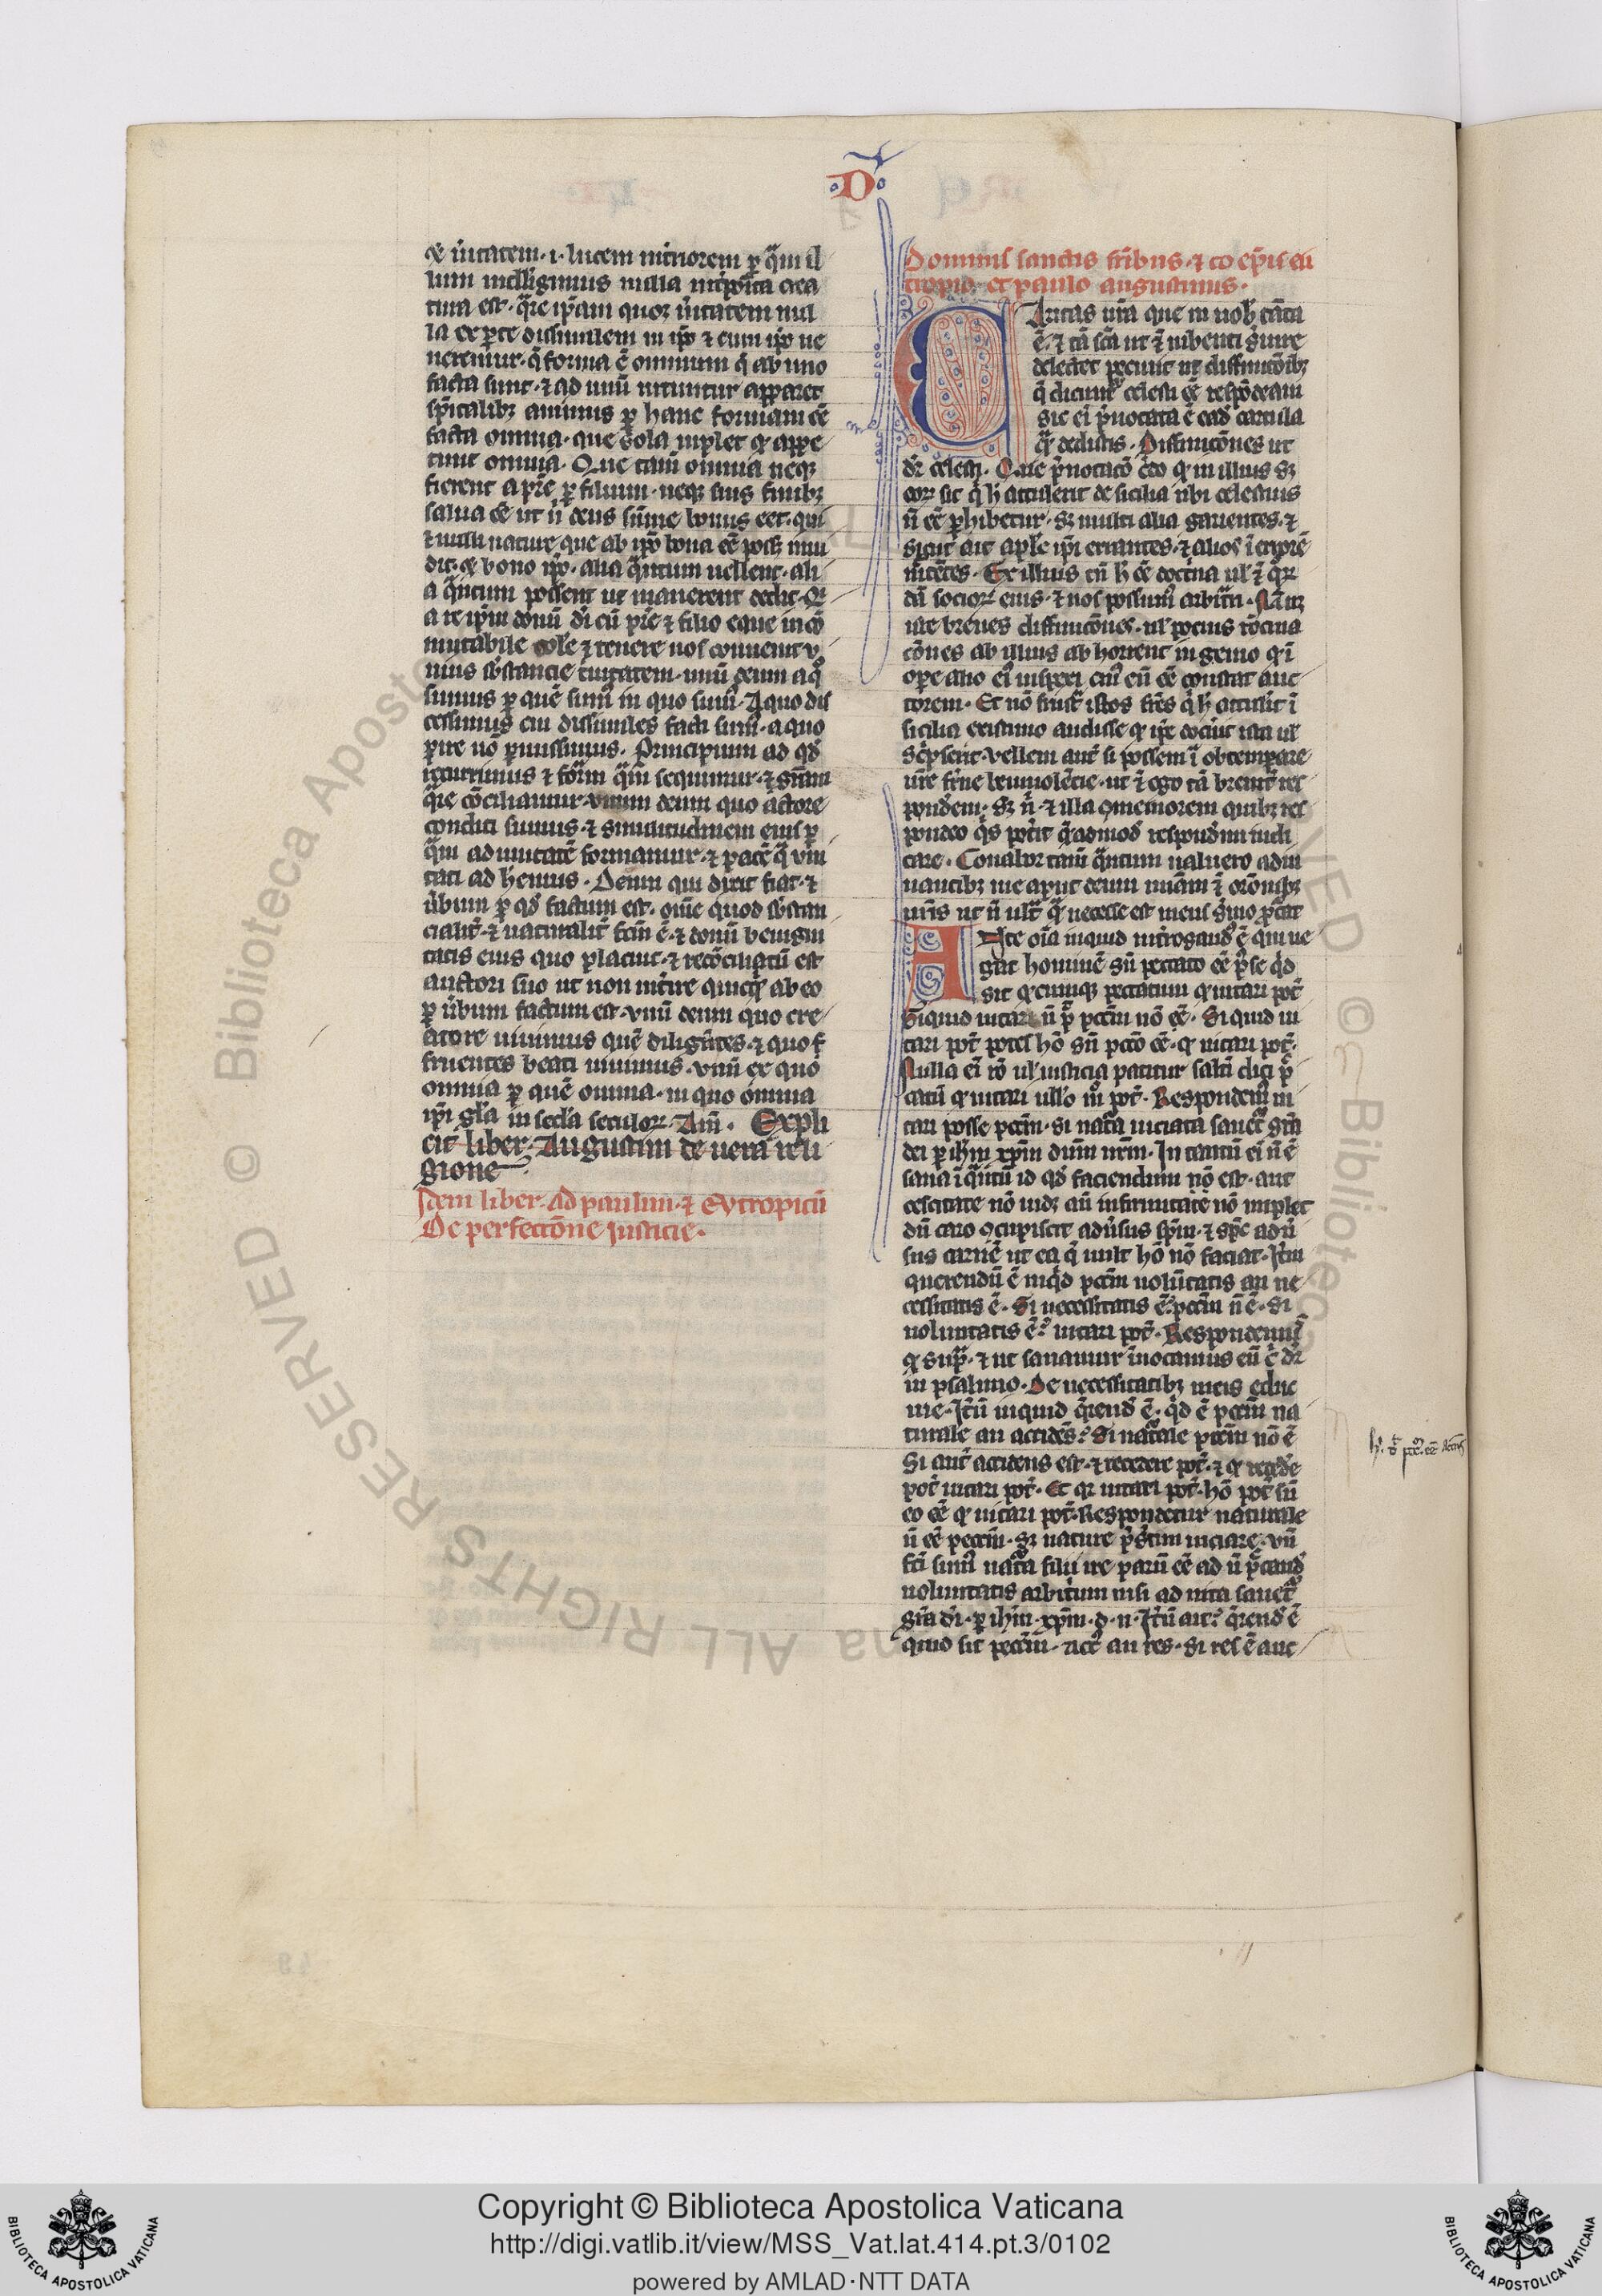 D
et ueritatem .i. lucem interiorem per quam il
lum intelligimus nulla interposita crea
tura est. quare ipsam quoque ueritatem nul
la ex parte dissimilem in ipso et cum ipso ue
neremur. que forma est omnium que ab uno
facta sunt. et ad unum nituntur apparet
spiritalibus animis per hanc formam esse
facta omnia. que sola inplet quod appe
tunt omnia. Que tamen omnia neque
fierent a patre per filium. neque suis finibus
salua essent nisi deus summe bonus esset. qui
et nulli nature que ab ipso bona esse posset inui
dit. et in bono ipso. alia quantum uellent. ali
a quantum possent ut manerent dedit. Qu
a re ipsum donum dei cum patre et filio eque incom
mutabile colere et tenere nos conuenit v
nius substancie trinitatem. unum deum a quo
sumus per quem sumus in quo sumus. A quo dis
cessimus cui dissimiles facti sumus. a quo
perire non permissimus. Principium ad quod
recurrimus et formam quam sequimur. et graciam
qua reconciliamur. vnum deum quo auctore
conditi sumus. et similitudinem eius per
quam ad unitatem formamur. et pacem qua vni
tati adheremus. Deum qui dixit fiat. et
uerbum per quod factum est. omne quod substan
cialiter et naturaliter factum est. et donum benigni
tatis eius quo placuit. et reconciliatum est
auctori suo ut non interiret quicquid ab eo
per uerbum factum est. vnum deum quo cre
atore uiuimus per quem diligentes. et quo f
fruentes beati uiuimus. vnum ex quo
omnia per quem omnia. in quo omnia
ipsi gloria in secula seculorum. Amen. Expli
cit liber Augustini de uera reli
gione
Idem liber. Ad paulum. et Eytropium
De perfectione Iusticie.
Dominis sanctis fratribus. et coepiscopis eu
tropio. et paulo augustinus.
CAritas uestra que in uobis tanta
est. et tam sancta ut etiam iubenti seruire
delectet peciuit ut diffinicionibus
que dicuntur celestii esse respondeam
sic enim prenotata est eadem cartula
quam dedistis. Diffiniciones ut
dicitur celestii. Que prenotacio credo quod non illius sed
eorum sit qui hanc attulerunt de sicilia ubi celestius
non esse perhibetur. sed multi talia garrientes. et
sicut ait apostolus ipsi errantes. et alios in errorem
mittentes. Ex illius tamen hec esse doctrina uel etiam quorum
dam sociorum eius. et nos possumus arbitrari. Nam neque
iste breues diffiniciones. uel pocius racioncina
ciones ab illius abhorrent ingenio quod in
opere alio eius inspexi cuius eum esse constat auc
torem. Et non frustra istos fratres qui hec attulerunt in
sicilia existimo audisse quod ipse docuerit ista uel
scripserit. vellem autem si possem ita obtemperare
uestre fraterne beniuolencie. ut et ego tam breuiter res
ponderem. sed nisi et illa commemorem quibus res
pondeo quis poterit quemadmodum responderim iudi
care. Conabor tamen quantum ualuero adiu
uantibus me apud deum misericordiam et oracionibus
uestris ut non ultra quam necesse est meus sermo procedat
ANte omnia inquid interrogandus est qui ne
gat hominem sine peccato esse posse quid
sit quodcumque peccatum quod uitari potest
Siquid uitari non potest peccatum non est. Siquid ui
tari potest potest homo sine peccato esse. quod uitari potest.
Nulla enim racio uel iusticia patitur saltem dici pec
catum quod uitari ullo modo non potest. Respondemus ui
tari posse peccatum. si natura uiciata sanetur gracia
dei per ihesum xpistum dominum nostrum. In tantum enim non est
sana in quantum id quod faciendum non est. aut
cecitate non uidet aut infirmitate non implet
dum caro concupiscit aduersus spiritum. et spiritus aduer
sus carnem ut ea que uult homo non faciat. Iterum
querendum est inquid peccatum uoluntatis an ne
cessitatis est. Si necessitatis est? peccatum non est. Si
uoluntatis est? uitari potest. Respondemus
quod supra. et ut sanemur inuocamus eum cui dicitur
in psalmo. De necessitatibus meis educ
me. Iterum inquid querendum est. quid est peccatum na
turale an accidens? Si naturale peccatum non est
Si autem accidens est. et recedere potest. et quod recedere
potest uitari potest. Et quod uitari potest. homo potest sine
eo esse quod uitari potest. Respondetur naturale
non esse peccatum. sed nature presertim uiciate. vnde
facti sumus natura filii ire parum esse ad non peccandum
uoluntatis arbitrium nisi adiuta sanetur
gracia dei. per ihesum. xpistum. d. n. Iterum ait? querendum est
quid sit peccatum. actus an res. Si res est auc
Copyright © Biblioteca Apostolica Vaticana
http://digi.vatlib.it/view/MSS_Vat.lat.414.pt.3/0102
powered by AMLAD·NTT DATA
BIBLIOTECA APOSTOLICA VATICANA
BIBLIOTECA APOSTOLICA VATICANA